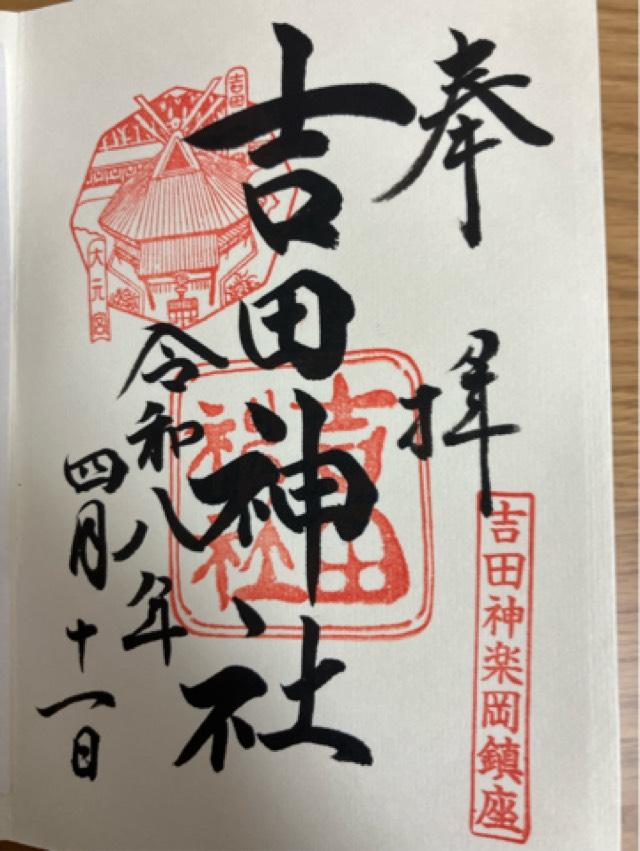 奉拝
吉田神楽岡鎮座
吉田神社
吉田神社
令和八年
四月十一日
吉田
大元宮